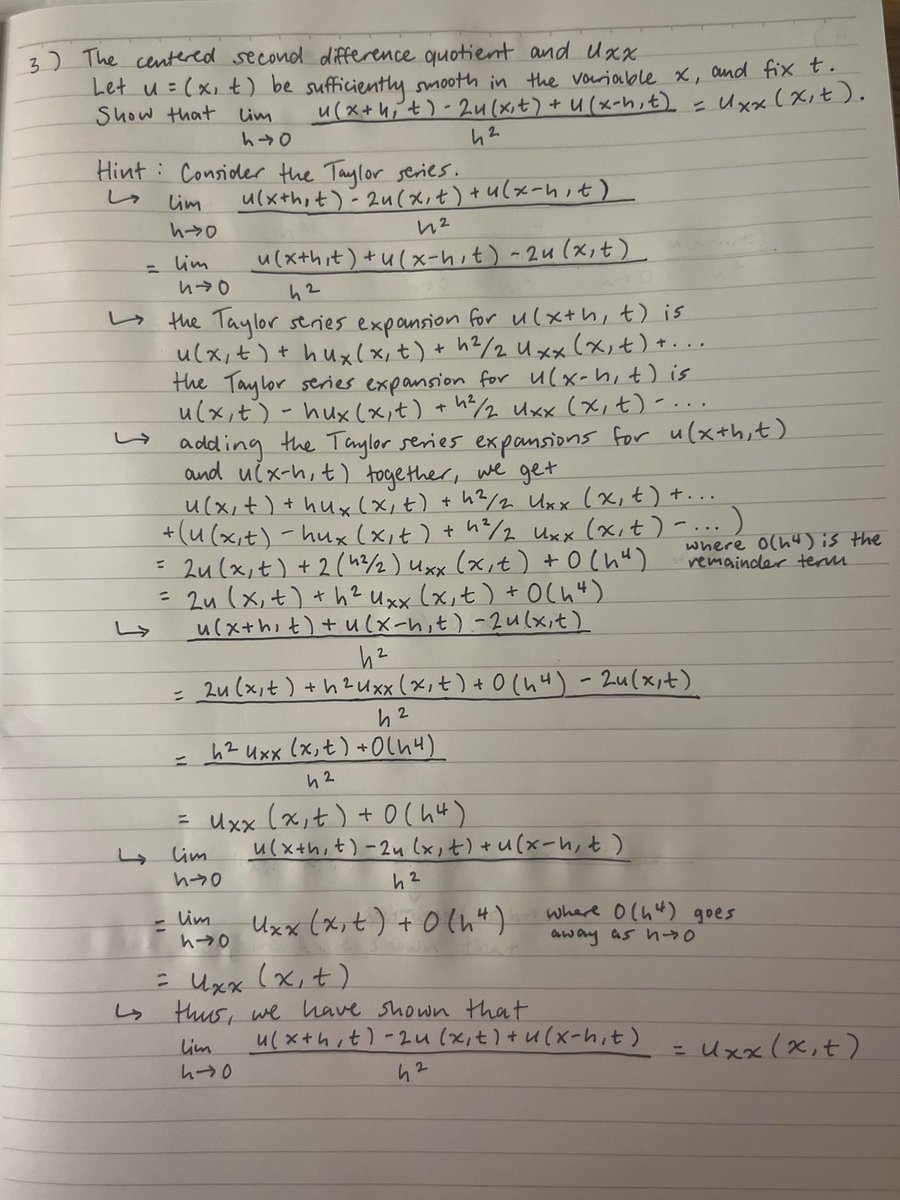 3) The centered second difference quotient and uxx
Let u = (x, t) be sufficiently smooth in the variable x, and fix t.
Show that lim h→0 u(x+h, t) - 2u(x,t) + u(x-h,t) / h² = uxx(x,t).
Hint : Consider the Taylor series.
↳ lim h→0 u(x+h,t) - 2u(x,t) + u(x-h,t) / h²
= lim h→0 u(x+h,t) + u(x-h,t) - 2u(x,t) / h²
↳ the Taylor series expansion for u(x+h, t) is
u(x,t) + hux(x,t) + h²/2 uxx(x,t) + ...
the Taylor series expansion for u(x-h,t) is
u(x,t) - hux(x,t) + h²/2 uxx(x,t) - ...
↳ adding the Taylor series expansions for u(x+h,t)
and u(x-h,t) together, we get
u(x,t) + hux(x,t) + h²/2 uxx(x,t) + ...
+(u(x,t) - hux(x,t) + h²/2 uxx(x,t) - ...)
= 2u(x,t) + 2(h²/2) uxx(x,t) + O(h⁴) where O(h⁴) is the remainder term
= 2u(x,t) + h² uxx(x,t) + O(h⁴)
↳ u(x+h,t) + u(x-h,t) - 2u(x,t) / h²
= 2u(x,t) + h² uxx(x,t) + O(h⁴) - 2u(x,t) / h²
= h² uxx(x,t) + O(h⁴) / h²
= uxx(x,t) + O(h⁴)
↳ lim h→0 u(x+h,t) - 2u(x,t) + u(x-h,t) / h²
= lim h→0 uxx(x,t) + O(h⁴) where O(h⁴) goes away as h→0
= uxx(x,t)
↳ thus, we have shown that
lim h→0 u(x+h,t) - 2u(x,t) + u(x-h,t) / h² = uxx(x,t)